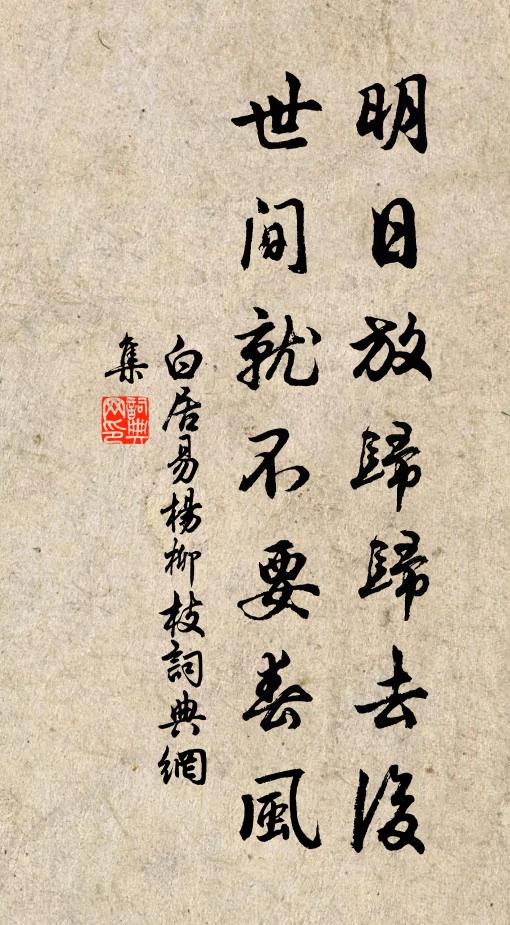 明日放歸歸去後
世间就不要春風
白居易楊柳枝詞典網
集
詞典网印